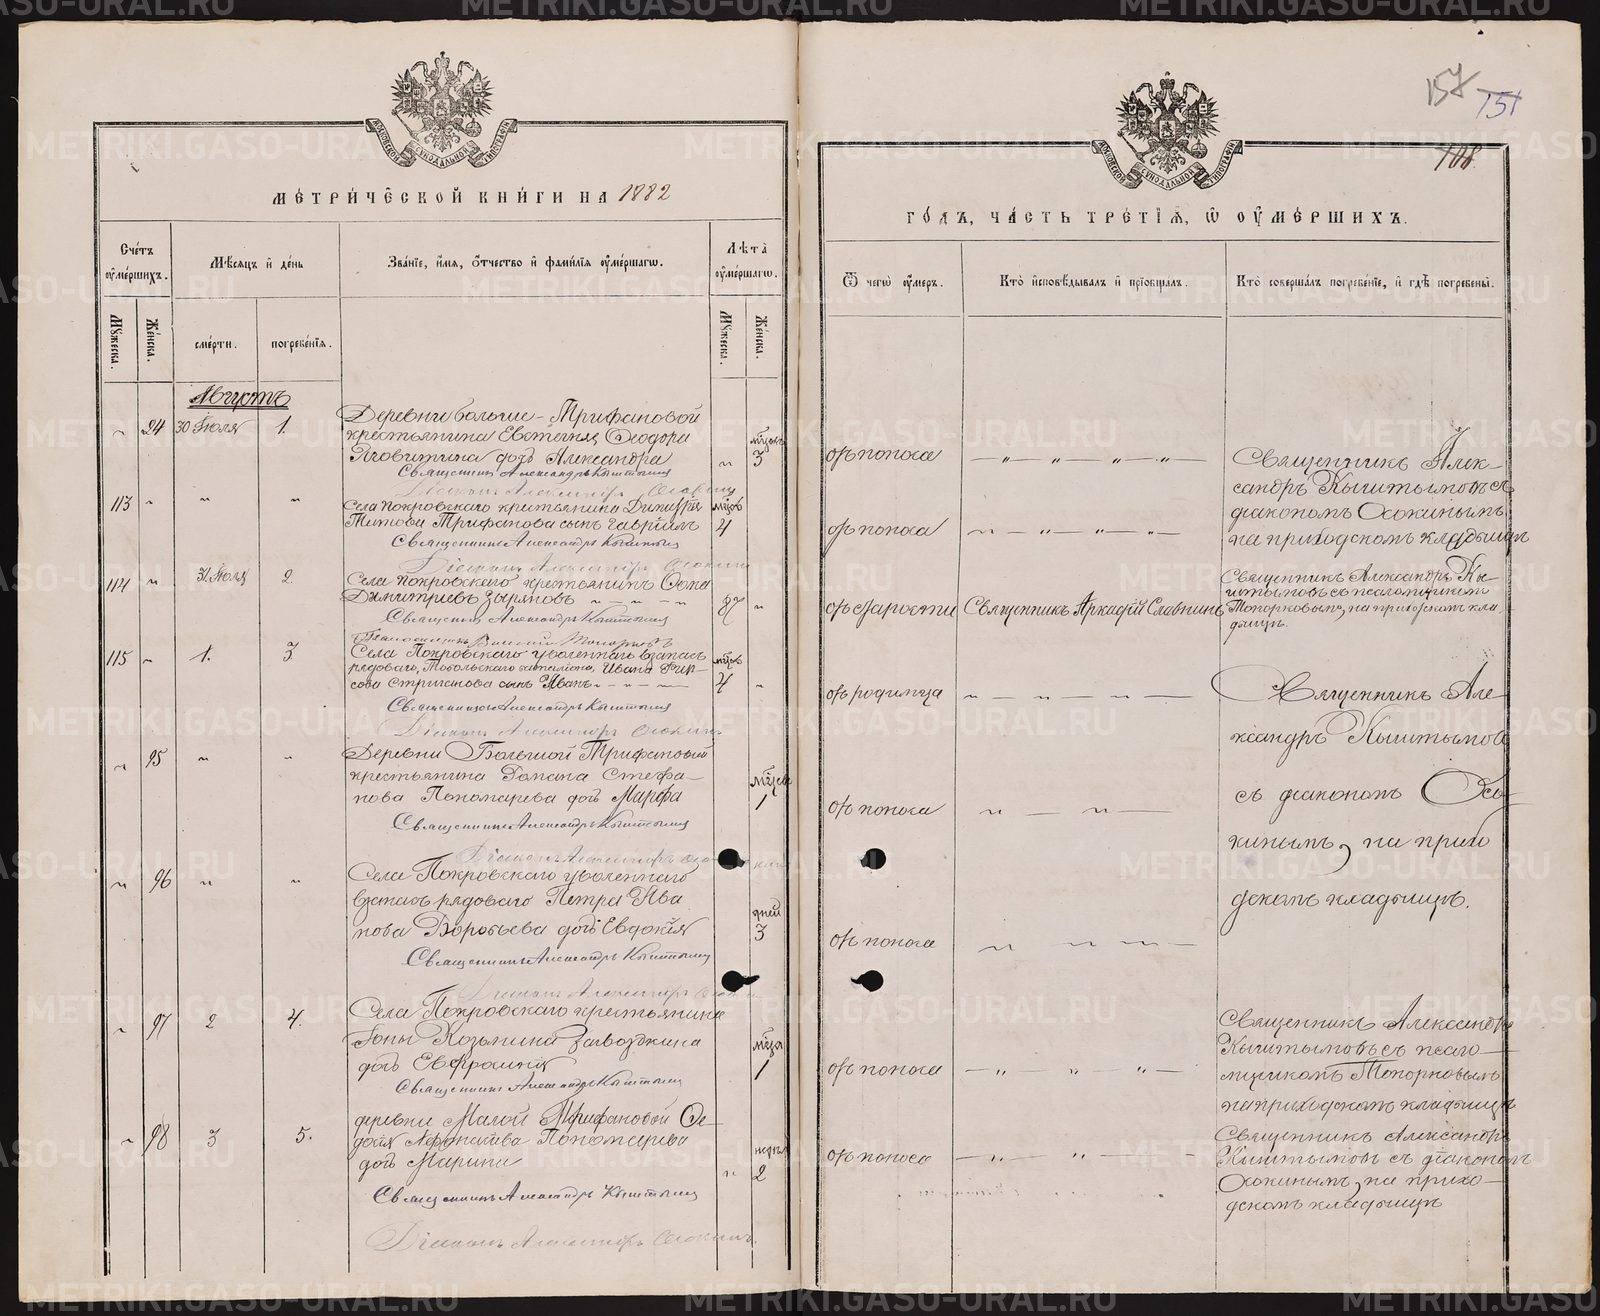 МОСКОВСКОЙ СѴНОДАЛЬНОЙ ТИПОГРАФІИ
МЕТРИЧЕСКОЙ КНИГИ НА 1882
Счетъ оумершихъ.
Мѣсяцъ и день
Званіе, имя, отчество и фамилія оумершагω.
Лѣта оумершагω.
Мужеска.
Женска.
смерти.
погребенія.
Мужеска.
Женска.
Августъ
24 30 Іюля 1.
Деревни больше-Трифановой
крестьянина Евгенія Ѳеодора
дочь Александра
мѣсяц 3
Священникъ Александръ Кыштымовъ
Діаконъ Александръ Осокинъ
113 " " "
Села Покровскаго крестьянина Димитрія
Титова Трифанова сынъ Гавріилъ
4
Священникъ Александръ Кыштымовъ
Діаконъ Александръ Осокинъ
114 " 31 Іюля 2.
Села Покровскаго крестьянинъ Ѳома
Димитріевъ Зыряновъ
87 "
Священникъ Александръ Кыштымовъ
Псаломщикъ Топорковъ
115 " 1. 3.
Села Покровскаго уволеннаго въ запасъ
рядоваго, Тобольскаго баталіона, Ивана Фир-
сова Стриганова сынъ Иванъ
4 "
Священникъ Александръ Кыштымовъ
Діаконъ Александръ Осокинъ
" 95 " "
Деревни Большой Трифановой
крестьянина Романа Стефа-
нова Пономарева дочь Марфа
1
Священникъ Александръ Кыштымовъ
Діаконъ Александръ
" 96 " "
Села Покровскаго уволеннаго
въ запасъ рядоваго Петра Ива
нова Воробьева дочь Евдокія
дней 3
Священникъ Александръ Кыштымовъ
Діаконъ Александръ
" 97 2 4.
Села Покровскаго крестьянина
Іоны Козьмина Загвоздкина
дочь Евфросинія
1
Священникъ Александръ Кыштымовъ
" 98 3 5.
деревни Малой Трифановой Ѳе-
Пономарева
дочь Марина
" 2
Священникъ Александръ Кыштымовъ
Діаконъ Александръ Осокинъ
157
151
108
МОСКОВСКОЙ СѴНОДАЛЬНОЙ ТИПОГРАФІИ
ГОДЪ, ЧАСТЬ ТРЕТІЯ, Ѡ ОУМЕРШИХЪ.
Ѿ чегω оумеръ.
Кто исповѣдывалъ и пріобщалъ.
Кто совершалъ погребеніе, и гдѣ погребены.
отъ поноса
Священникъ Алек-
сандръ Кыштымовъ съ
діакономъ Осокинымъ
на приходскомъ кладбищѣ
отъ поноса
отъ старости
Священникъ Аркадій Славнинъ
Священникъ Александръ Кы-
штымовъ съ псаломщикомъ
Топорковымъ, на приходскомъ кла
дбищѣ.
отъ родимца
Священникъ Але-
ксандръ Кыштымовъ
съ діакономъ Осо-
кинымъ, на прихо
дскомъ кладбищѣ.
отъ поноса
отъ поноса
отъ поноса
Священникъ Александръ
Кыштымовъ съ псало-
мщикомъ Топорковымъ
на приходскомъ кладбищѣ
отъ поноса
Священникъ Александръ
Кыштымовъ съ діакономъ
Осокинымъ, на прихо-
дскомъ кладбищѣ
METRIKI.GASO-URAL.RU